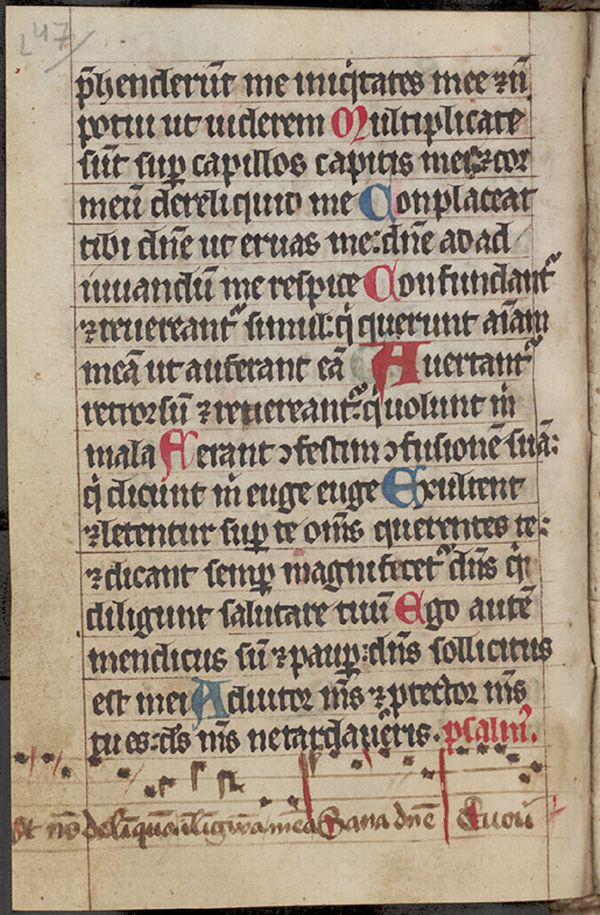 247
p̄henderūt me iniq̇tates mee ⁊ n̄
potui ut uiderem Multiplicate
sūt suꝑ capillos capitis mei: ⁊ cor
meū dereliquid me Conplaceat
tibi dn̄e ut eruas me: dn̄e ad ad
iuuandū me respice Confundantᷣ
⁊ reuereantᷣ simul: q̇ querunt aīam
meā ut auferant eā Auertantᷣ
retrorsū ⁊ reuereantᷣ: q̇ uolunt m̄
mala Ferant ↄfestim ↄfusionē suā:
q̇ dicunt m̄ euge euge Exultent
⁊ letentur suꝑ te om̄s querentes te:
⁊ dicant semꝑ magnificetᷣ dn̄s q̇
diligunt salutare tuū Ego autē
mendicus sū ⁊ pauꝑ: dn̄s sollicitus
est mei Adiutor m̄s ⁊ ptector m̄s
tu es: ds̄ m̄s ne tardaūeris. psalm᾽.
Ut nō delīquā ī līgwa mea Sana dn̄e Euou